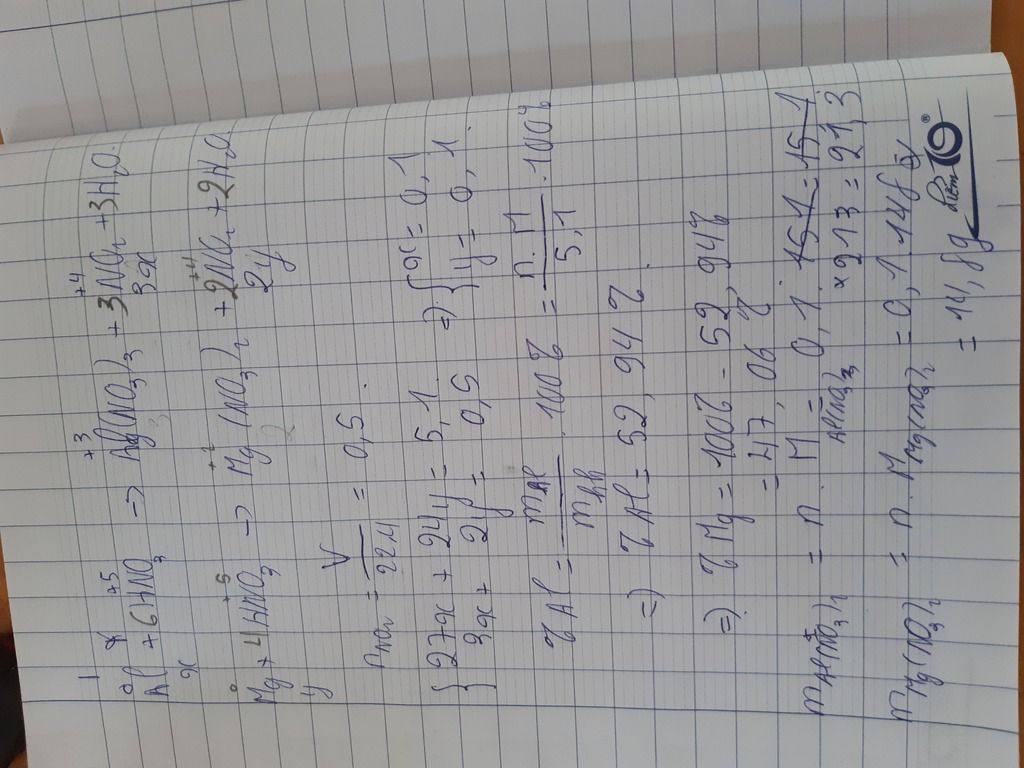 Al + 6HNO3 -> Al(NO3)3 + 3NO2 + 3H2O
x 3x
Mg + 4HNO3 -> Mg(NO3)2 + 2NO2 + 2H2O
y 2y
nNO2 = V / 22,4 = 0,5
{ 27x + 24y = 5,1
3x + 2y = 0,5 => { x = 0,1
y = 0,1
% Al = mAl / mhh . 100% = n.M / 5,1 . 100%
=> % Al = 52,94 %
=> % Mg = 100% - 52,94%
= 47,06 %
mAl(NO3)3 = n . MAl(NO3)3 = 0,1 . 151 = 15,1
x 213 = 21,3
mMg(NO3)2 = n . MMg(NO3)2 = 0,1 . 148
= 14,8g
điểm 10®